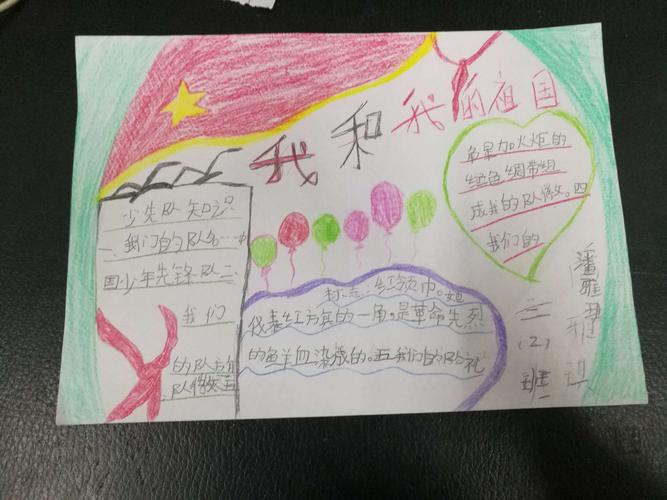 我和我的祖国
少先队知识
一、我们的队名:中
国少年先锋队二、
我们
的队
队徽五
角星加火炬的
红色绸带组
成我的队徽。四
我们的
标志:红领巾。她
代表红方真的一角。是革命先烈
的鲜血染成的。五我们的队礼
潘雅
三(2)班